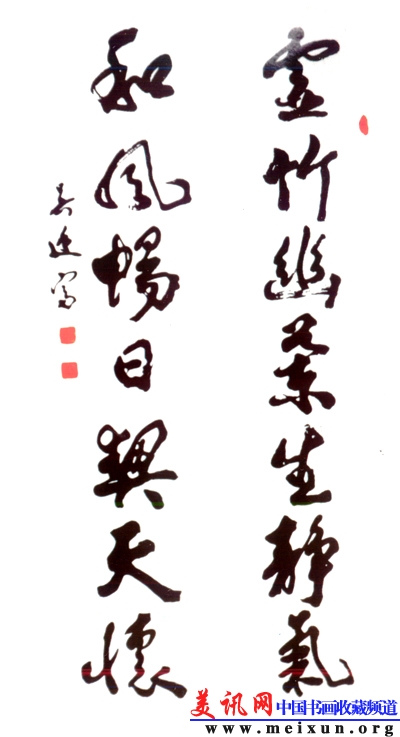 虚竹幽蘭生靜氣
和風暢日契天懷
美讯网 中国书画收藏频道
www.meixun.org